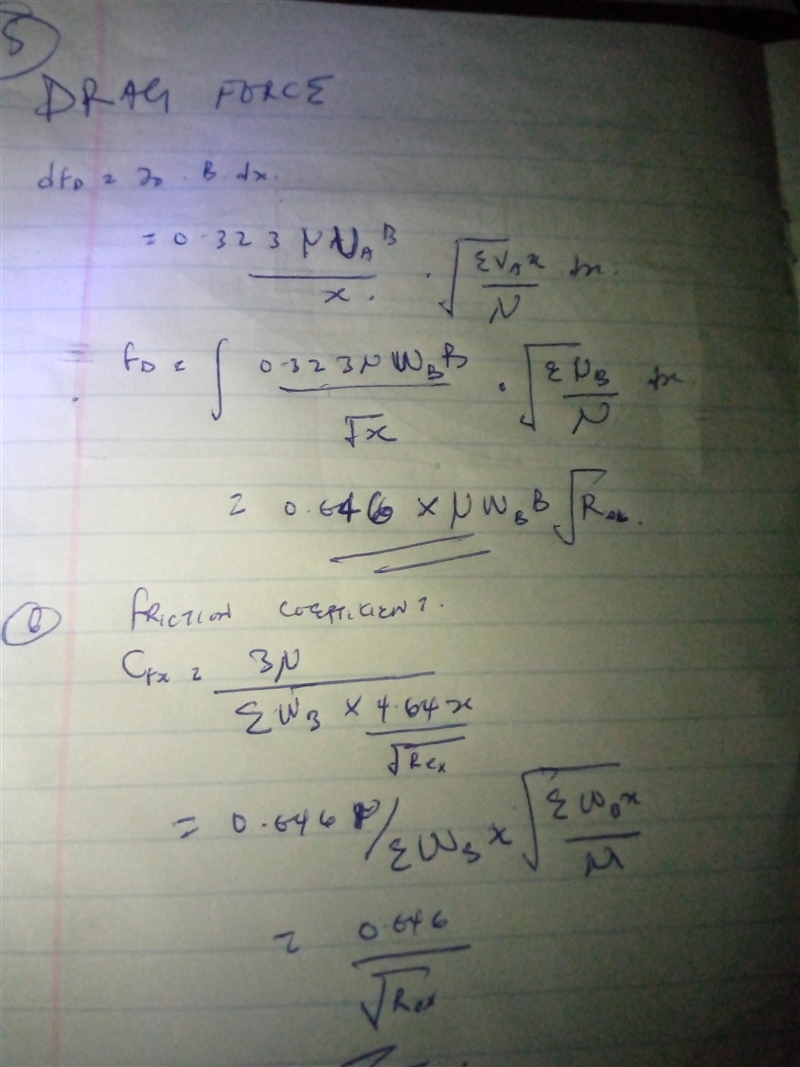 5
DRAG FORCE
dFD = τo . B . dx.
= 0.323 μUA B / x . √(ΣVA x / μ) dx.
FD = ∫ 0.323μ WB B / √x . √(Σ UB / μ) dx.
= 0.646 × μ WB B √Re
6 FRICTION COEFFICIENT.
Cfx = 3μ / (Σ WB × 4.64x / √Rex)
= 0.646 μ / Σ WB x √(Σ W x / μ)
= 0.646 / √Rex